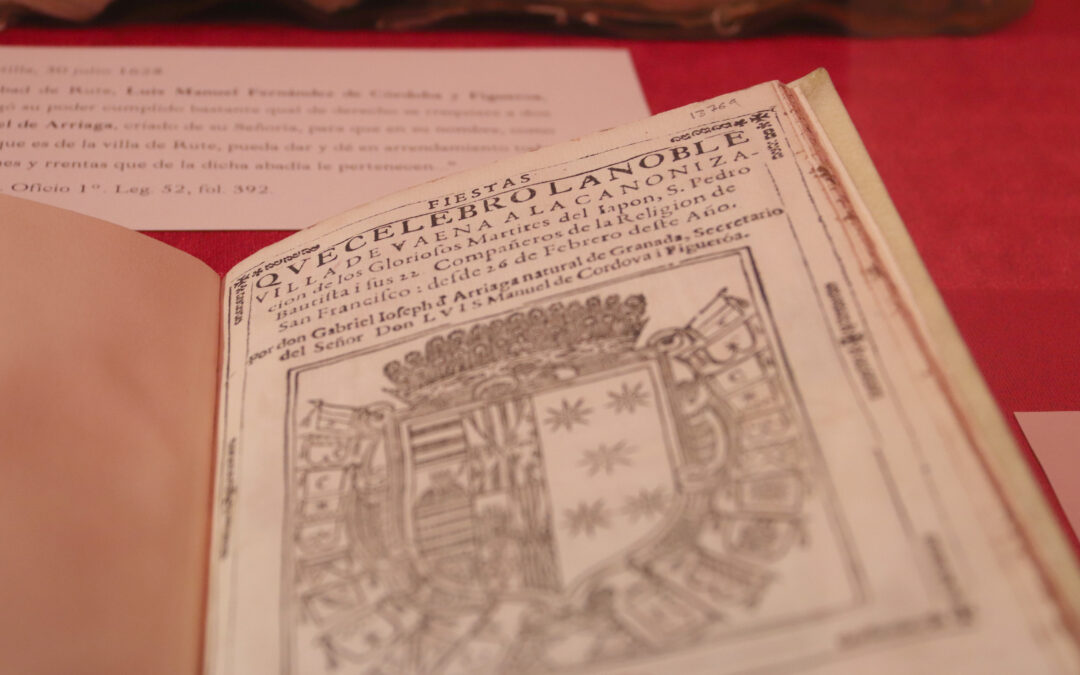 tilla, 30 julio 1628
bad de Rute, Luis Manuel Fernández de Córdoba y Figueroa,
gó su poder cumplido bastante qual de derecho se requiere a don
el de Arriaga, criado de su Señoría, para que en su nombre como
que es de la villa de Rute, pueda dar y dé en arrendamiento
es y rrentas que de la dicha abadía le pertenecen
. Oficio 1º. Leg. 52, fol. 392.
13769
FIESTAS
QVE CELEBRO LA NOBLE
VILLA DE VAENA A LA CANONIZA-
cion de los Gloriosos Martires del Iapon, S. Pedro
Bautista i sus 22 Compañeros de la Religion de
San Francisco: desde 26 de Febrero deste Año.
por don Gabriel Ioseph đ Arriaga natural de Granada, Secretario
del Señor Don LVIS Manuel de Cordova i Figueróa.